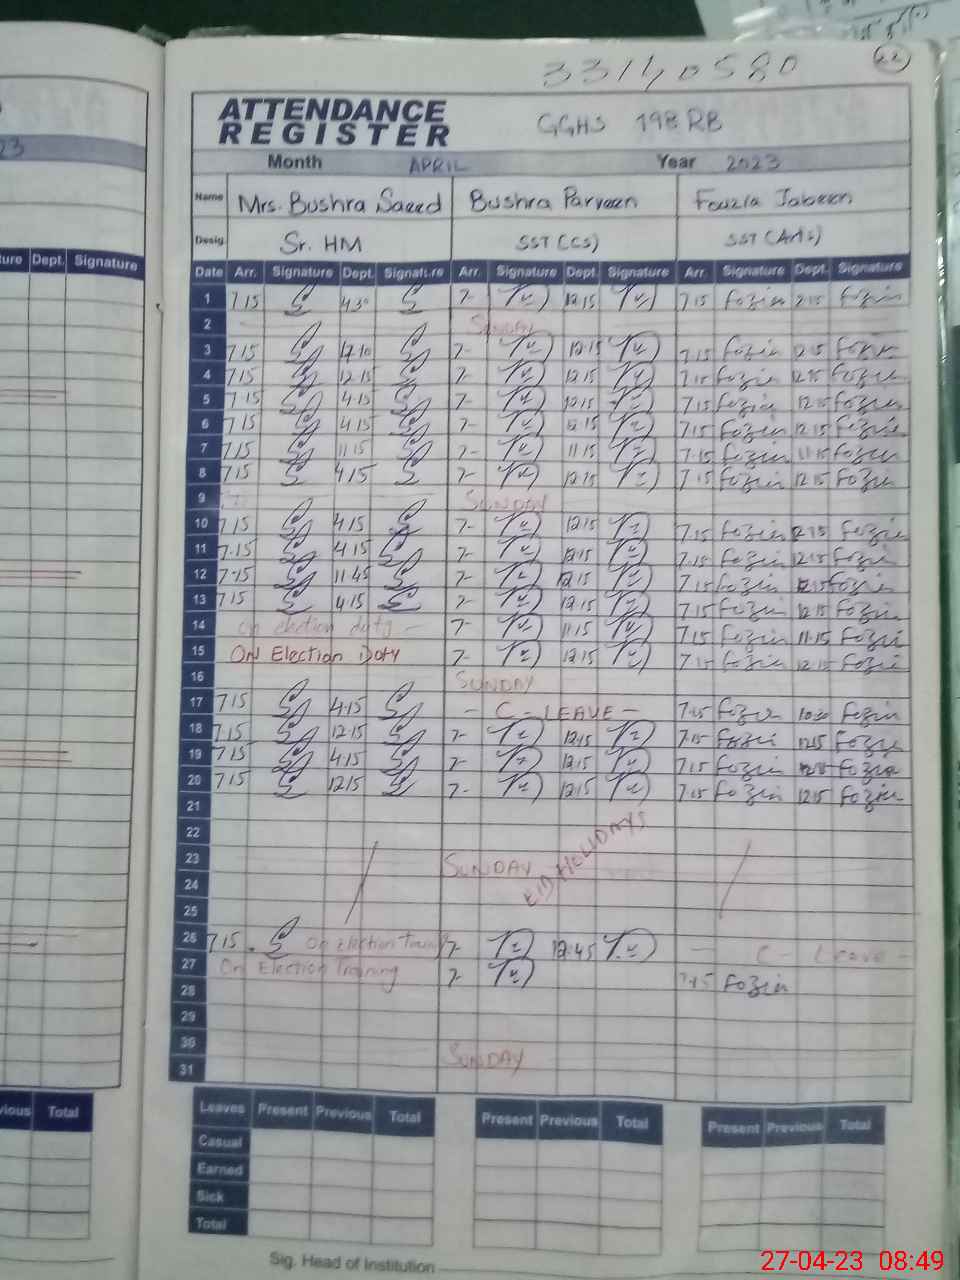 33140580
22
ATTENDANCE
REGISTER
GGHS 198 RB
Month APRIL Year 2023
23
Name Mrs. Bushra Saeed Bushra Parveen Fouzia Jabeen
Desig. Sr. HM SST (CS) SST (Arts)
ture Dept. Signature
Date Arr. Signature Dept. Signature Arr. Signature Dept. Signature Arr. Signature Dept. Signature
1 7.15 4.30 7- 12.15 7.15 Fozia Fozia
2 SUNDAY
3 7.15 7- 12.15 7.15 Fozia Fozia
4 7.15 12.15 7- 12.15 7.15 Fozia 12.15 Fozia
5 7.15 4.15 7- 12.15 7.15 Fozia 12.15 Fozia
6 7.15 4.15 7- 12.15 7.15 Fozia 12.15 Fozia
7 7.15 11.15 7- 11.15 7.15 Fozia 11.15 Fozia
8 7.15 4.15 7- 12.15 7.15 Fozia 12.15 Fozia
9 SUNDAY
10 7.15 4.15 7- 12.15 7.15 Fozia 12.15 Fozia
11 7.15 4.15 7- 12.15 7.15 Fozia 12.15 Fozia
12 7.15 11.45 7- 12.15 7.15 Fozia 12.15 Fozia
13 7.15 4.15 7- 12.15 7.15 Fozia 12.15 Fozia
14 On election duty - 7- 11.15 7.15 Fozia 11.15 Fozia
15 ON Election Duty 7- 12.15 7.15 Fozia 12.15 Fozia
16 SUNDAY
17 7.15 4.15 - C - LEAVE - 7.15 Fozia 10.30 Fozia
18 7.15 12.15 7- 12.15 7.15 Fozia 12.15 Fozia
19 7.15 4.15 7- 12.15 7.15 Fozia Fozia
20 7.15 12.15 7- 12.15 7.15 Fozia 12.15 Fozia
21
22
23 SUNDAY
EID HOLIDAYS
24
25
26 7.15 On Election Training 7- 12.45 - C - Leave -
27 On Election Training 7- 7.15 Fozia
28
29
30 SUNDAY
31
vious Total
Leaves Present Previous Total Present Previous Total Present Previous Total
Casual
Earned
Sick
Total
Sig. Head of Institution
27-04-23 08:49